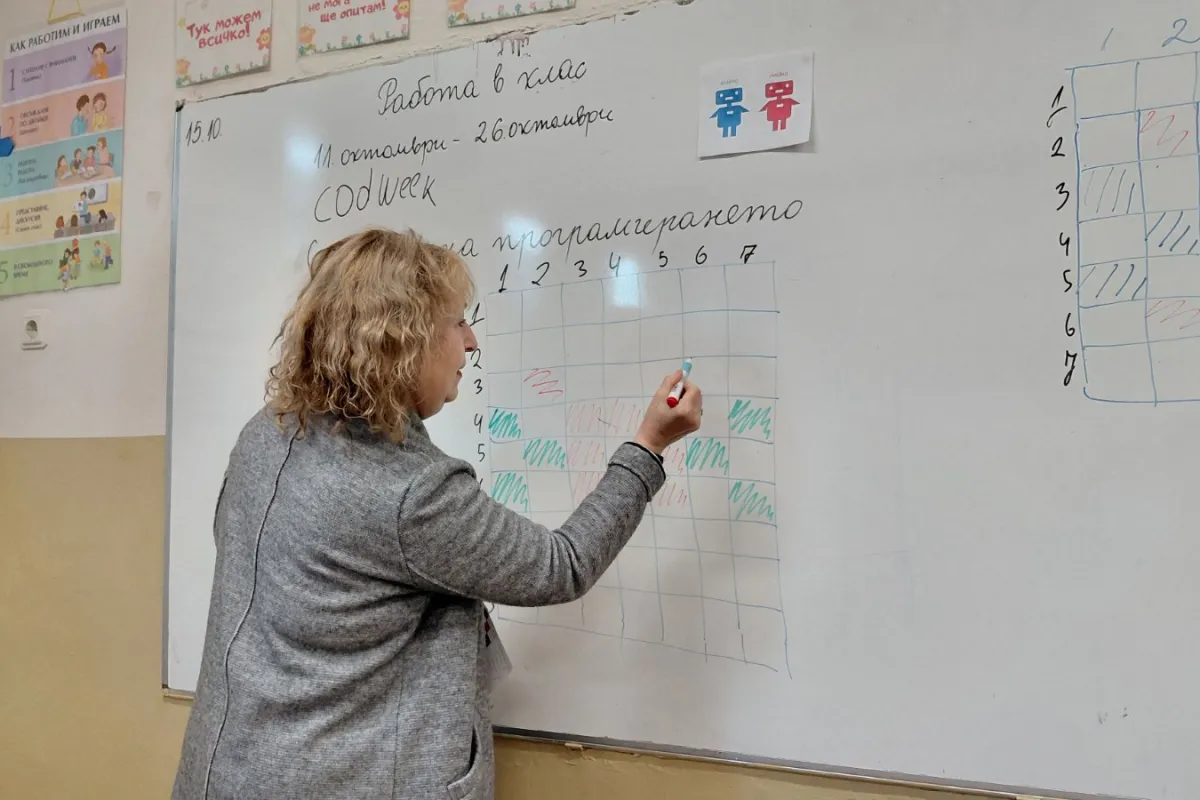 КАК РАБОТИМ И ИГРАЕМ
1
2
3
4
5
Тук можем
всичко!
не мога
ще опитам!
15.10.
Работа в клас
11. октомври - 26 октомври
CODWEEK
на програмирането
1 2 3 4 5 6 7
1
2
3
4
5
1 2
1
2
3
4
5
6
7